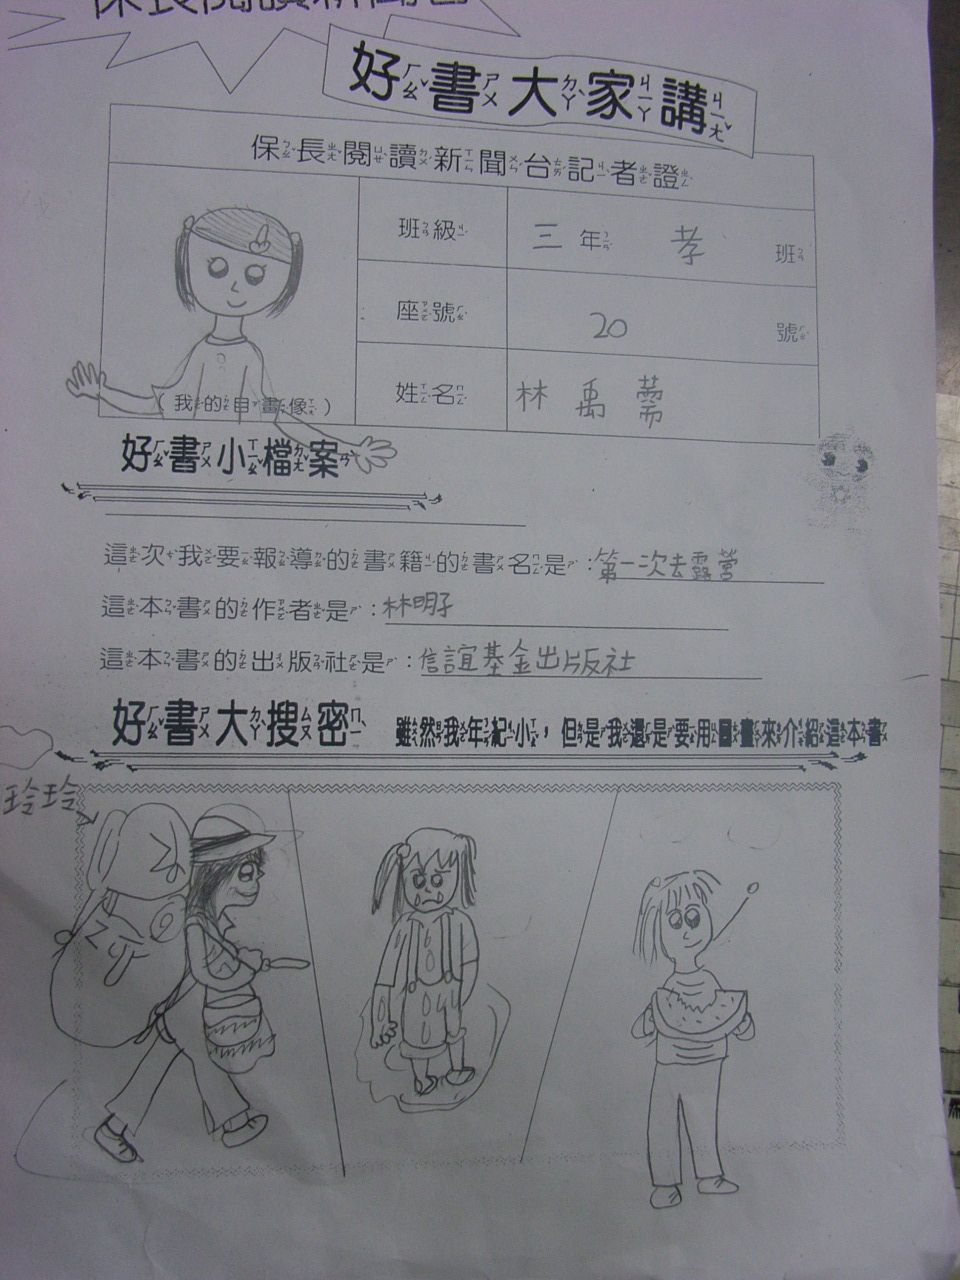 保長閱讀新聞台
好書大家講
保長閱讀新聞台記者證
班級 三年 孝 班
座號 20 號
姓名 林禹薷
（我的自畫像）
好書小檔案
這次我要報導的書籍的書名是：第一次去露營
這本書的作者是：林明子
這本書的出版社是：信誼基金出版社
好書大搜密 雖然我年紀小，但是我還是要用圖畫來介紹這本書
玲玲